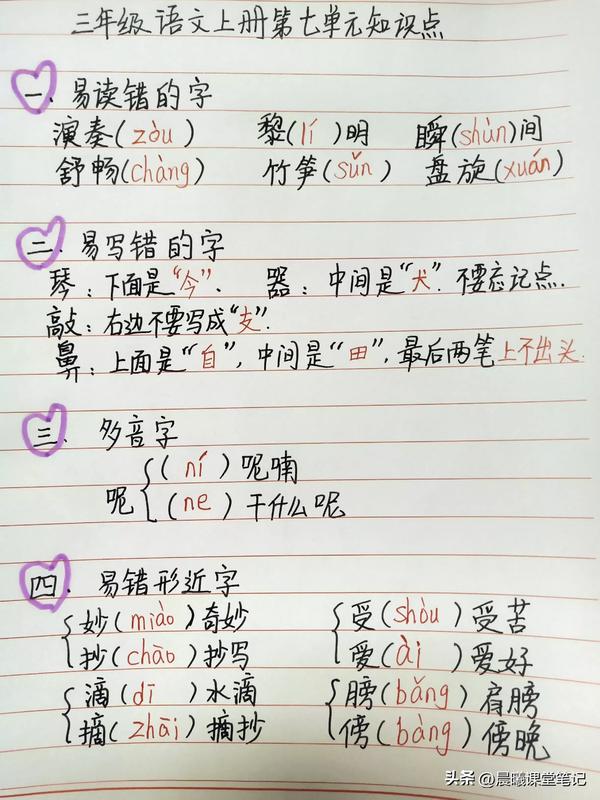 三年级语文上册第七单元知识点
一、易读错的字
演奏(zòu) 黎(lí)明 瞬(shùn)间
舒畅(chàng) 竹笋(sǔn) 盘旋(xuán)
二、易写错的字
琴：下面是“今”. 器：中间是“犬”.不要忘记点.
敲：右边不要写成“支”.
鼻：上面是“自”,中间是“田”,最后两笔上不出头.
三、多音字
呢{(ní)呢喃
(ne)干什么呢
四、易错形近字
{妙(miào)奇妙 {受(shòu)受苦
抄(chāo)抄写 爱(ài)爱好
{滴(dī)水滴 {膀(bǎng)肩膀
摘(zhāi)摘抄 傍(bàng)傍晚
头条 @晨曦课堂笔记